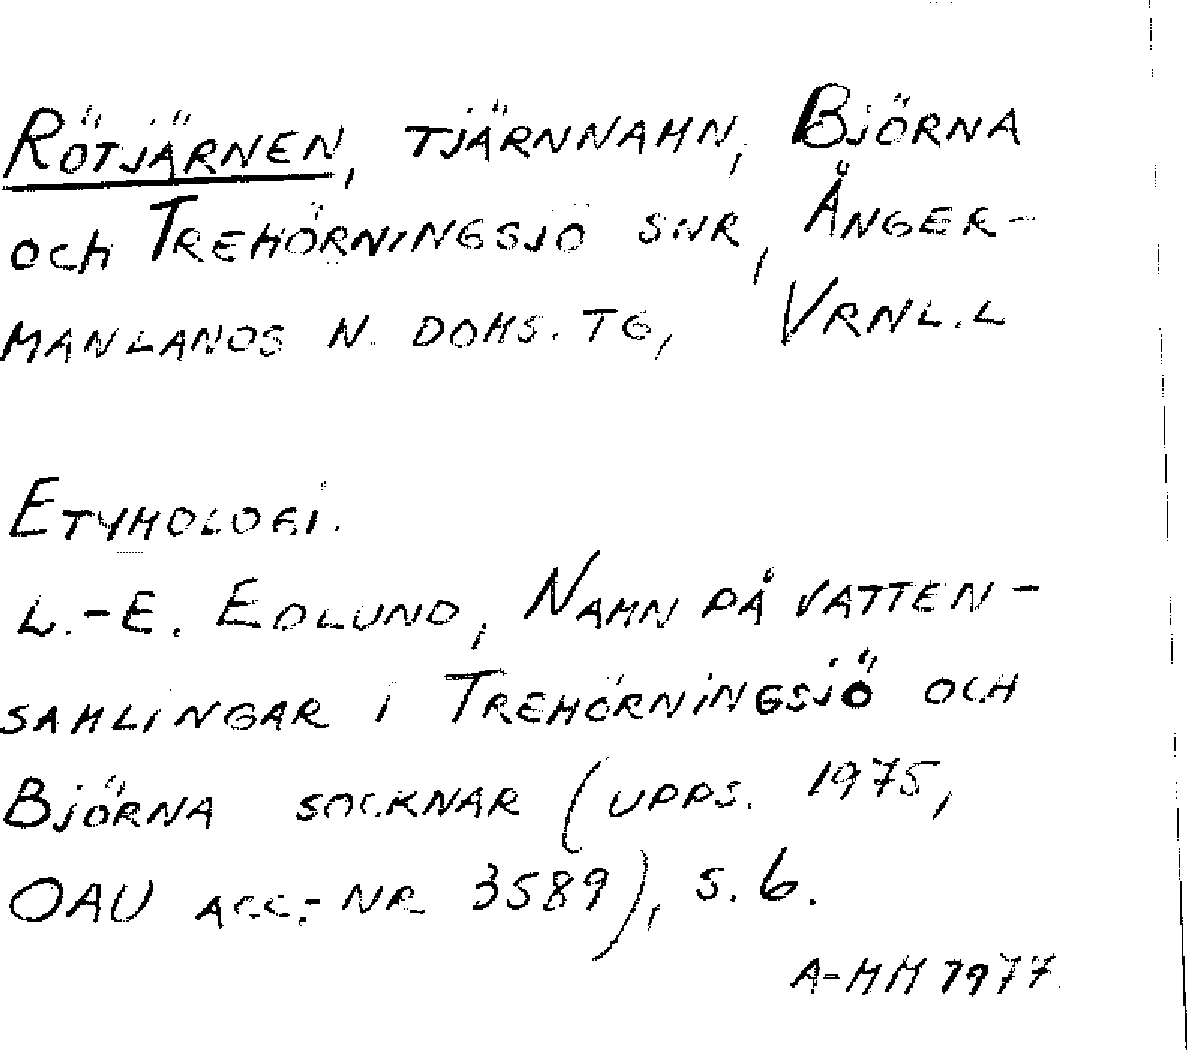 Rötjärnen, tjärnnamn, Björna
och Trehörningsjö snr, Ånger-
manlands n. doms. tg, Vrnl.l
Etymologi.
L.-E. Edlund, Namn på vatten-
samlingar i Trehörningsjö och
Björna socknar (upps. 1975,
OAU acc.-nr 3589), s. 6.
A-MM 1977